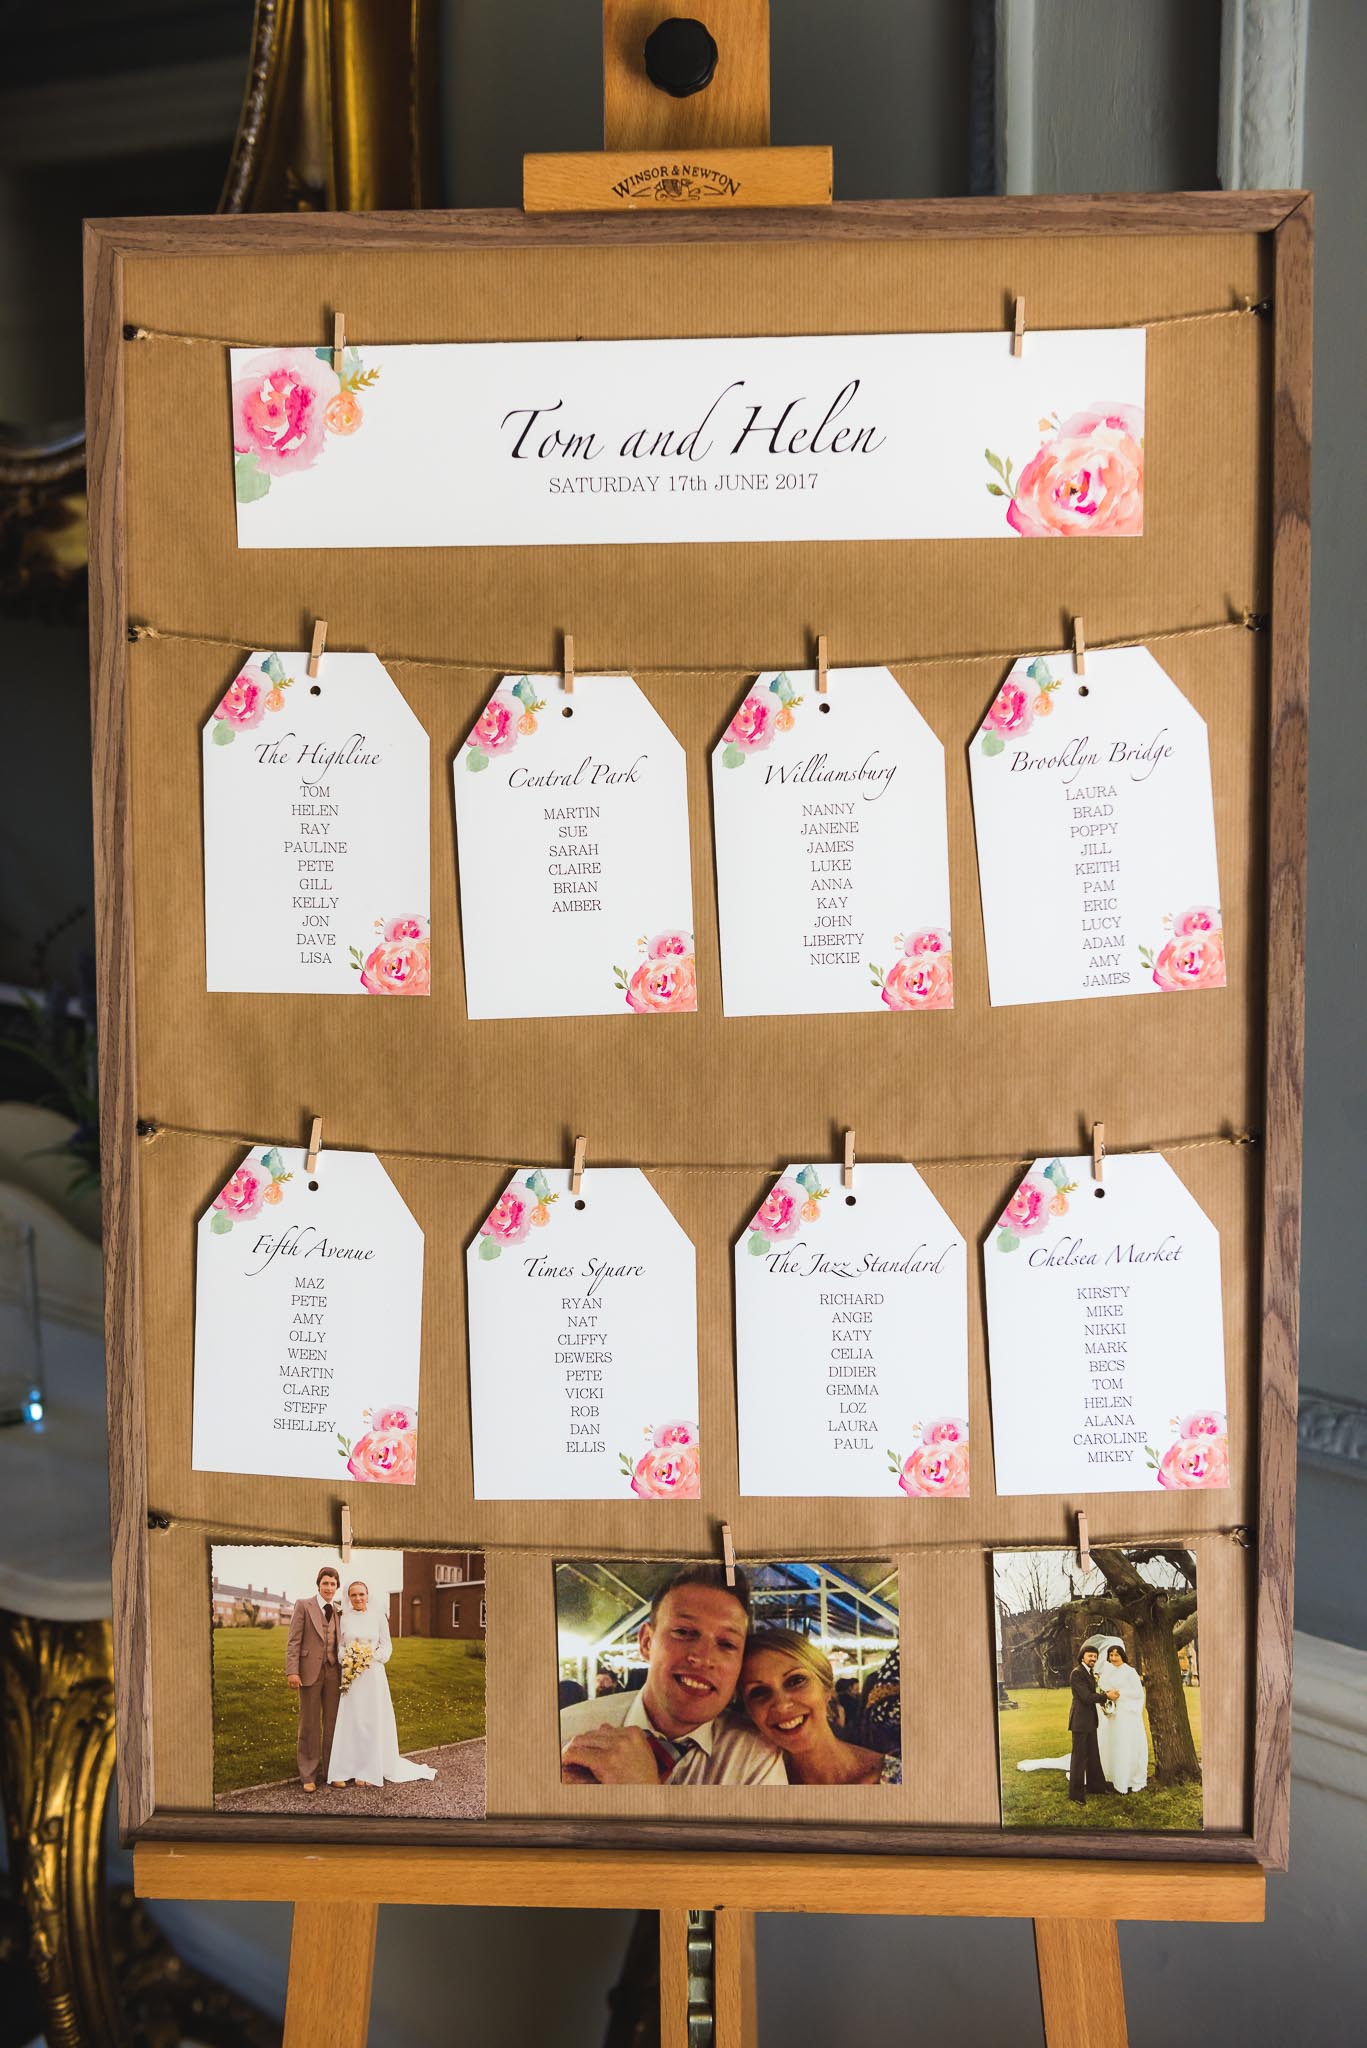 WINSOR & NEWTON
Tom and Helen
SATURDAY 17th JUNE 2017
The Highline
TOM
HELEN
RAY
PAULINE
PETE
GILL
KELLY
JON
DAVE
LISA
Central Park
MARTIN
SUE
SARAH
CLAIRE
BRIAN
AMBER
Williamsburg
NANNY
JANENE
JAMES
LUKE
ANNA
KAY
JOHN
LIBERTY
NICKIE
Brooklyn Bridge
LAURA
BRAD
POPPY
JILL
KEITH
PAM
ERIC
LUCY
ADAM
AMY
JAMES
Fifth Avenue
MAZ
PETE
AMY
OLLY
WEEN
MARTIN
CLARE
STEFF
SHELLEY
Times Square
RYAN
NAT
CLIFFY
DEWERS
PETE
VICKI
ROB
DAN
ELLIS
The Jazz Standard
RICHARD
ANGE
KATY
CELIA
DIDIER
GEMMA
LOZ
LAURA
PAUL
Chelsea Market
KIRSTY
MIKE
NIKKI
MARK
BECS
TOM
HELEN
ALANA
CAROLINE
MIKEY